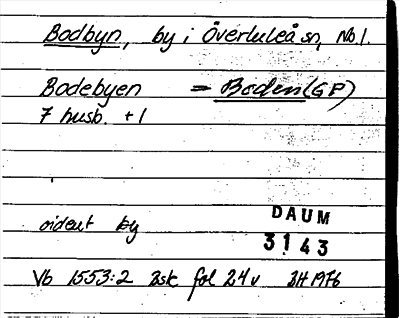 Bodbyn, by i Överluleå sn, No 1.
Bodebyen = Boden (GP)
7 husb. + 1
oident by
DAUM
3143
Vb 1553:2 Bsk fol 24v BH 1976